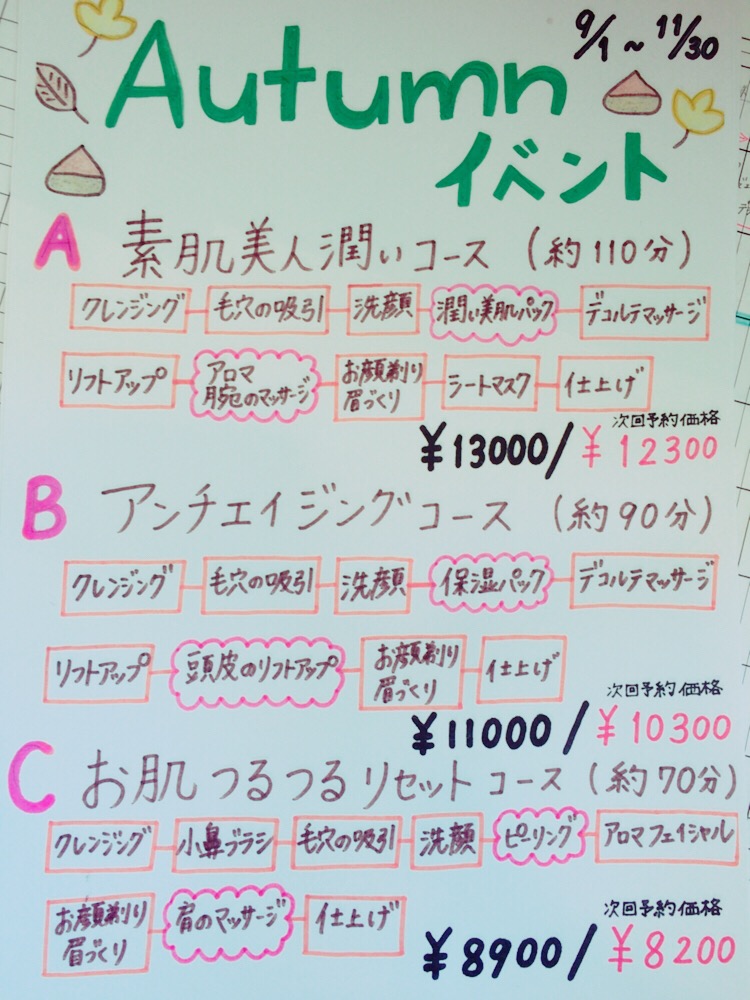 9/1~11/30
Autumn
イベント
A 素肌美人潤いコース (約110分)
クレンジング 毛穴の吸引 洗顔 潤い美肌パック デコルテマッサージ
リフトアップ アロマ 腕のマッサージ お顔剃り 眉づくり シートマスク 仕上げ
次回予約価格
¥13000/¥12300
B アンチエイジングコース (約90分)
クレンジング 毛穴の吸引 洗顔 保湿パック デコルテマッサージ
リフトアップ 頭皮のリフトアップ お顔剃り 眉づくり 仕上げ
次回予約価格
¥11000/¥10300
C お肌つるつるリセットコース (約70分)
クレンジング 小鼻ブラシ 毛穴の吸引 洗顔 ピーリング アロマフェイシャル
お顔剃り 眉づくり 肩のマッサージ 仕上げ
次回予約価格
¥8900/¥8200